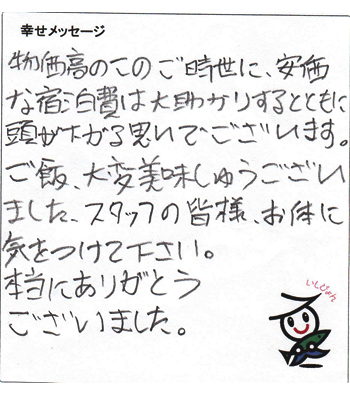 幸せメッセージ
物価高のこのご時世に、安価
な宿泊費は大助かりするとともに
頭が下がる思いでございます。
ご飯、大変美味しゅうござい
ました、スタッフの皆様、お体に
気をつけて下さい。
本当にありがとう
ございました。